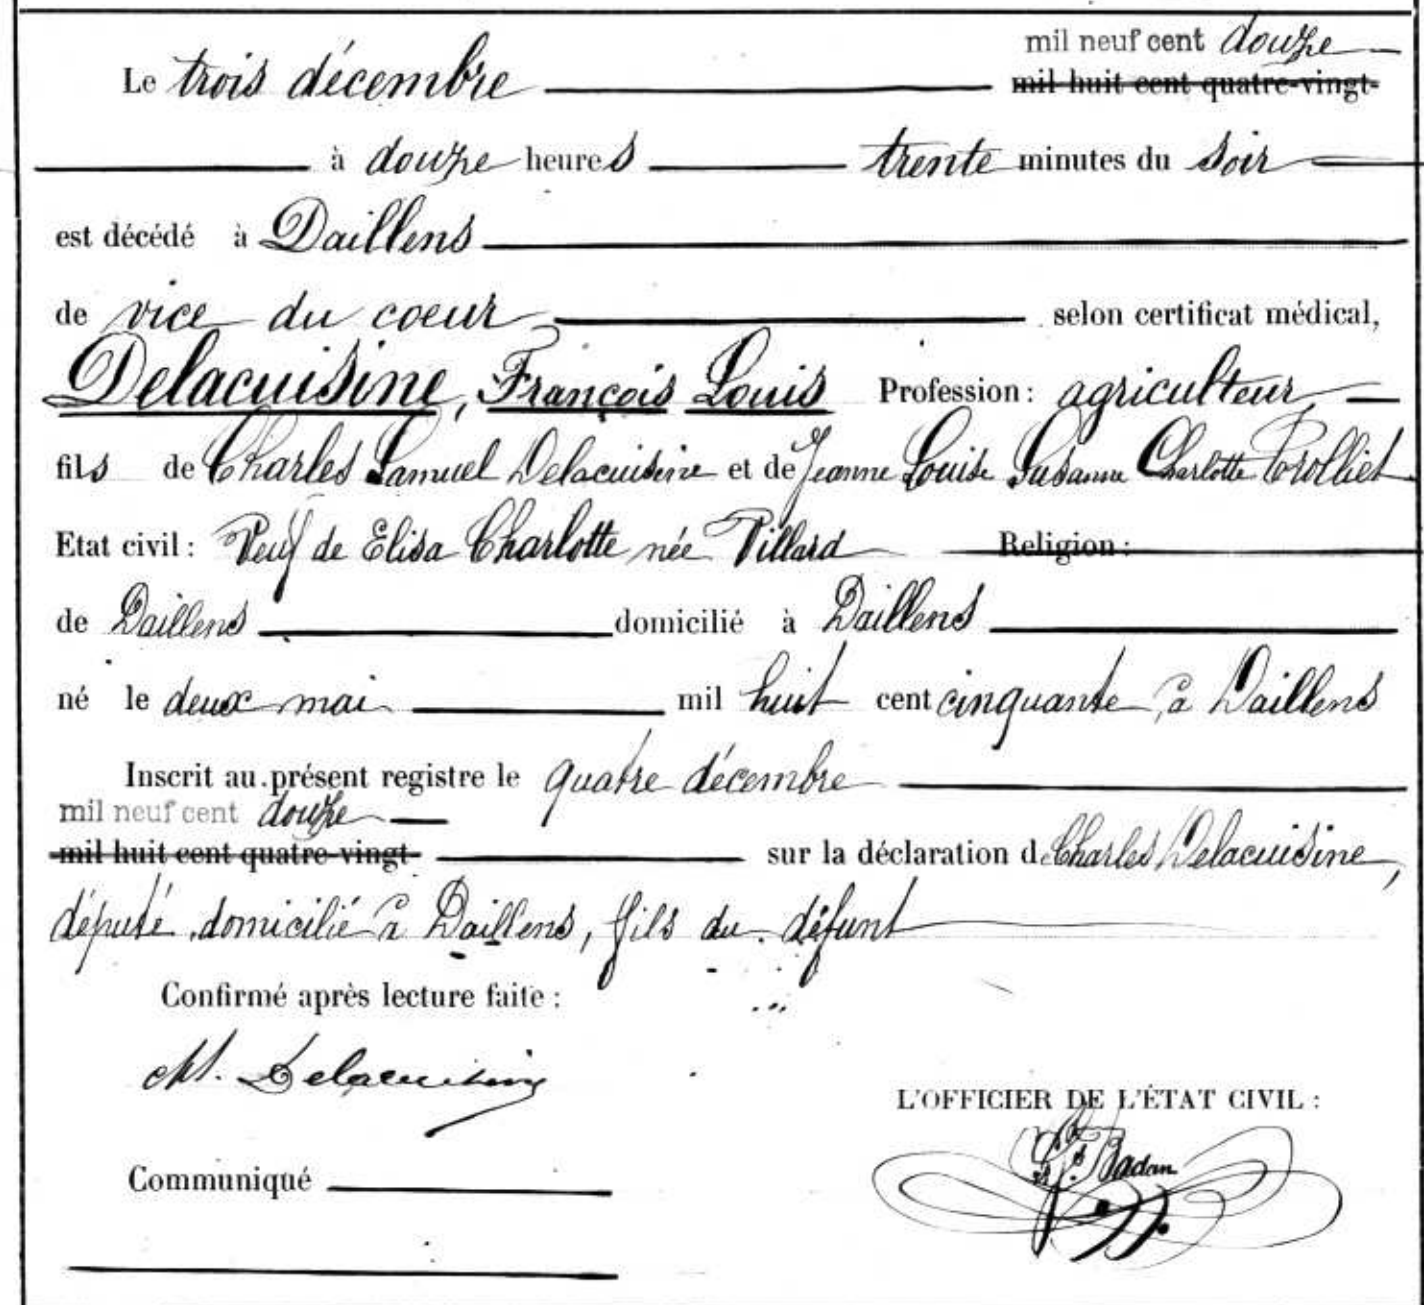 mil neuf cent douze
Le trois décembre mil huit cent quatre-vingt-
à douze heures trente minutes du soir
est décédé à Daillens
de vice du coeur selon certificat médical,
Delacuisine, François Louis Profession: agriculteur
fils de Charles Samuel Delacuisine et de Jeanne Louise Susanne Charlotte Trolliet
Etat civil: Veuf de Elisa Charlotte née Villard Religion:
de Daillens domicilié à Daillens
né le deux mai mil huit cent cinquante, à Daillens
Inscrit au présent registre le quatre décembre
mil neuf cent douze
mil huit cent quatre-vingt- sur la déclaration de Charles Delacuisine,
député, domicilié à Daillens, fils du défunt
Confirmé après lecture faite:
Ch. Delacuisine
L'OFFICIER DE L'ÉTAT CIVIL:
Badan
Communiqué